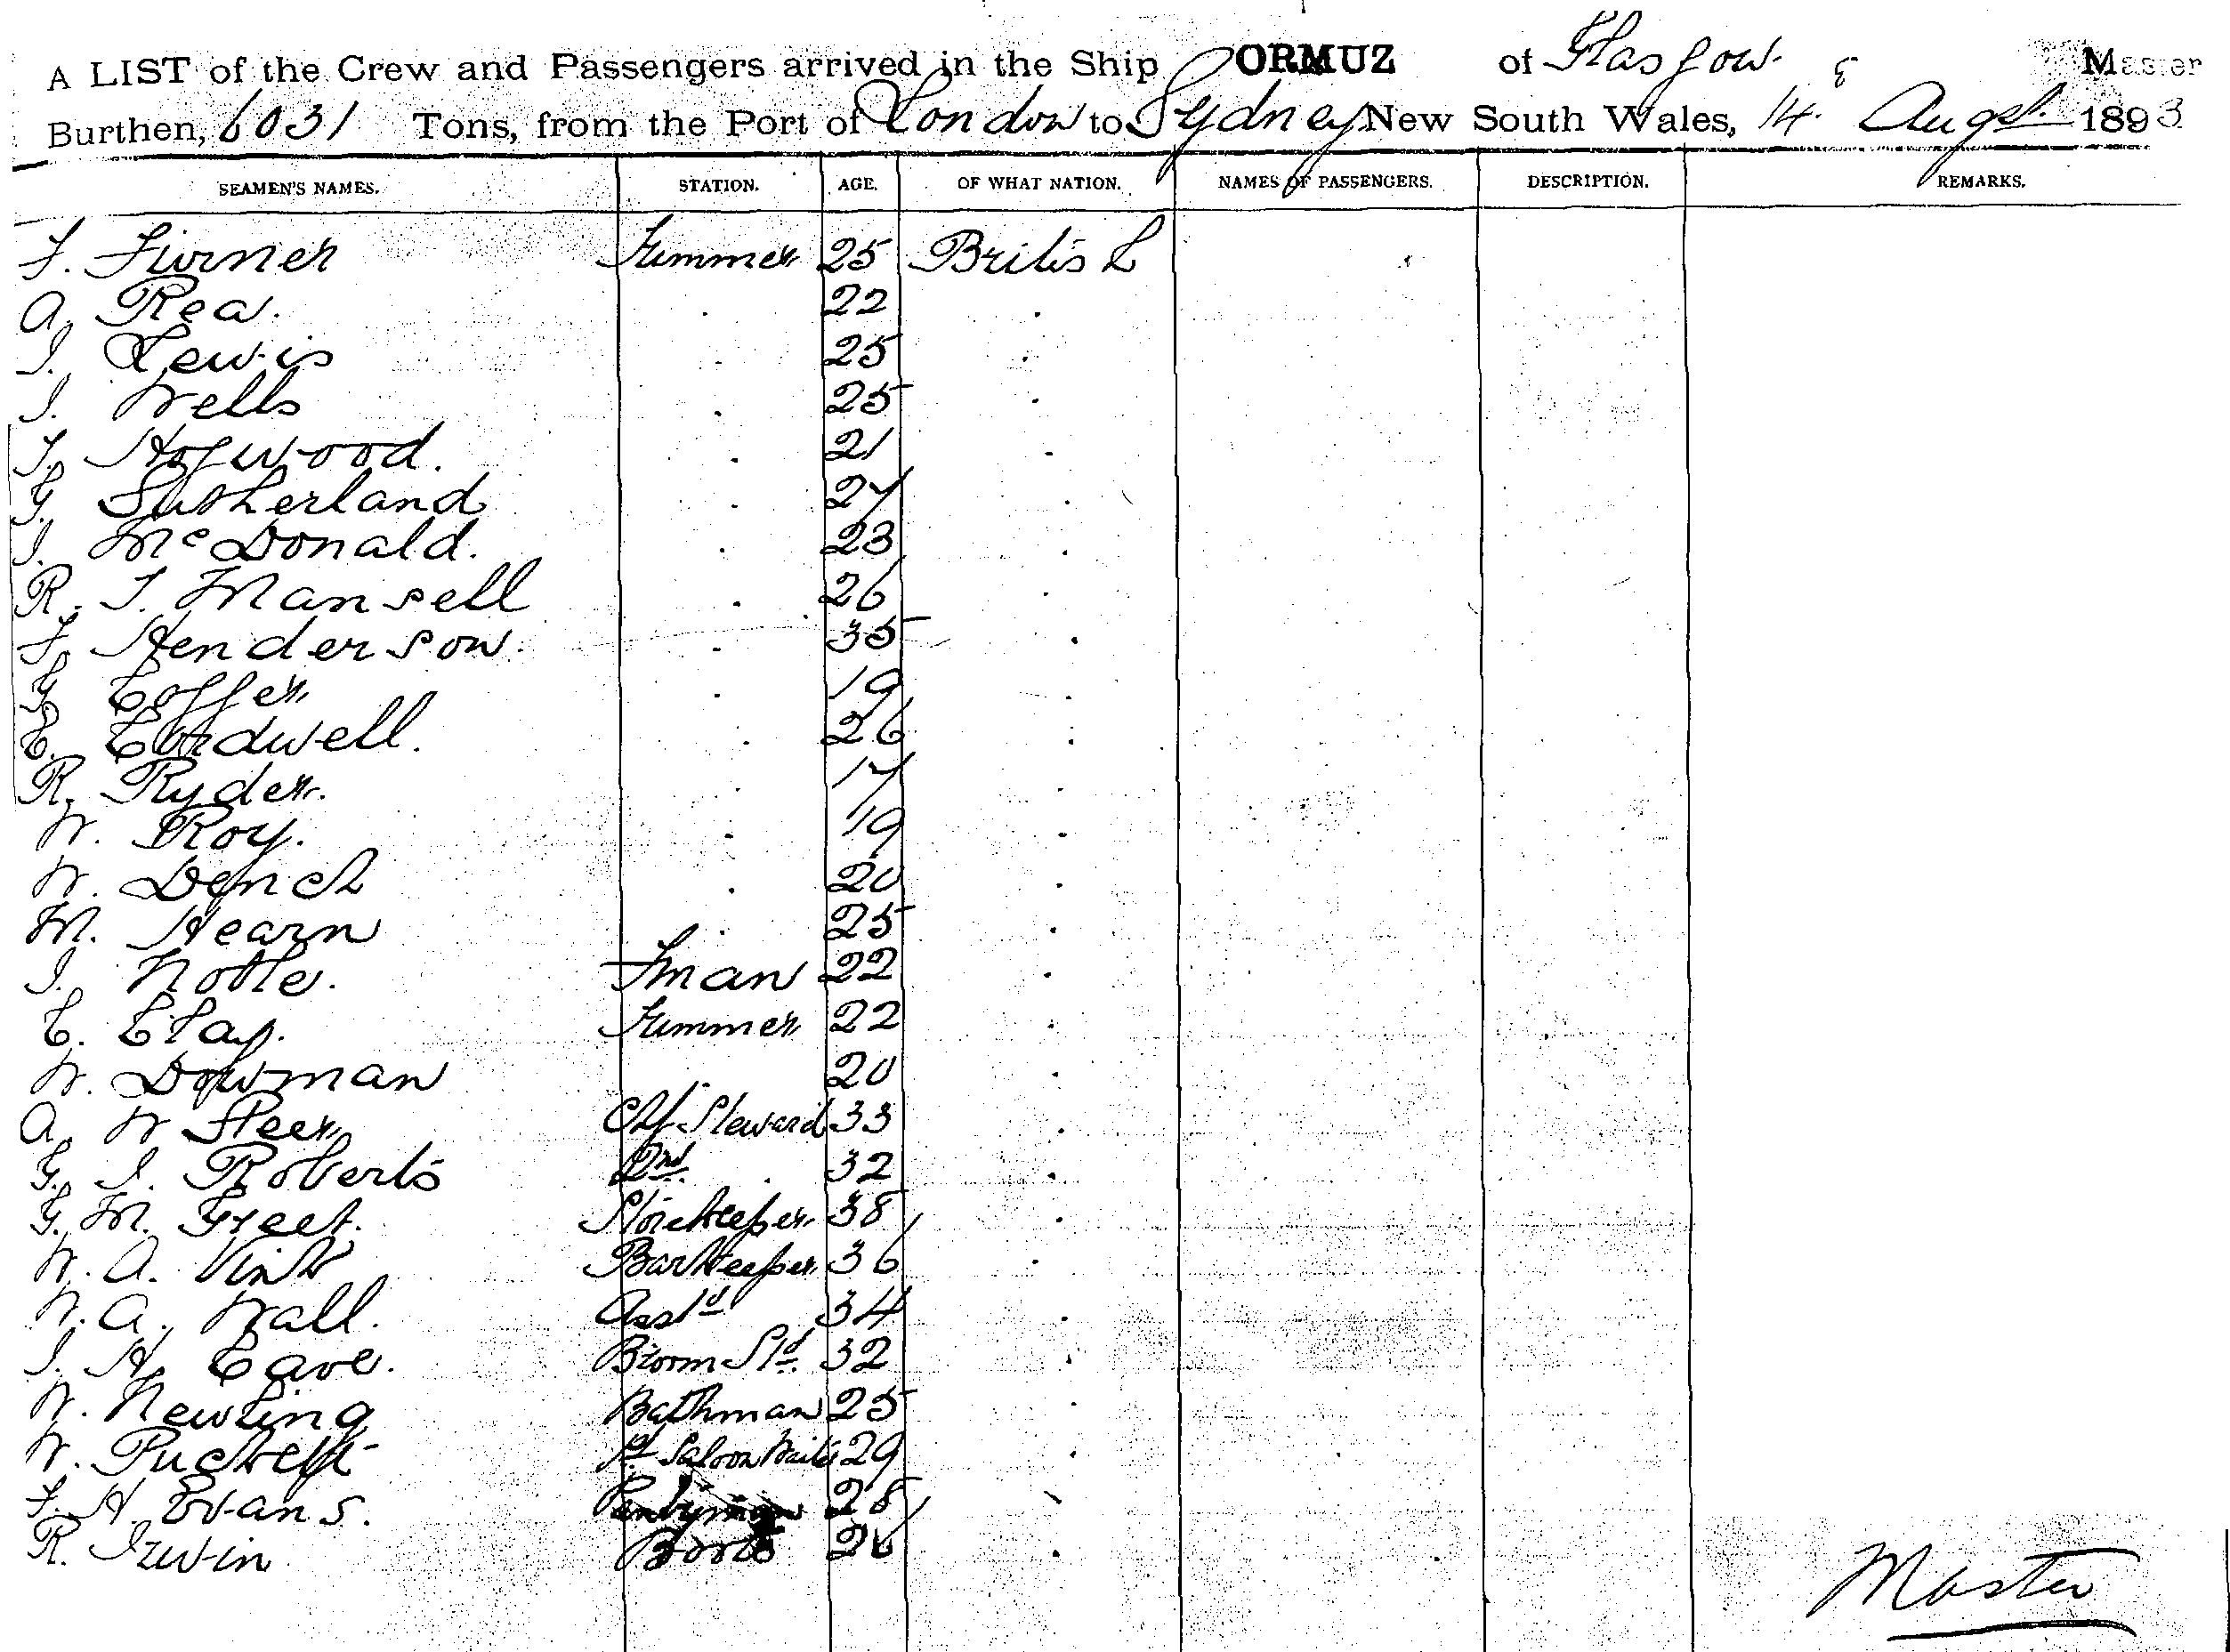 A LIST of the Crew and Passengers arrived in the Ship ORMUZ of Glasgow. Master
Burthen, 6031 Tons, from the Port of London to Sydney New South Wales, 14th Augst. 1893
SEAMEN'S NAMES. STATION. AGE. OF WHAT NATION. NAMES OF PASSENGERS. DESCRIPTION. REMARKS.
F. Turner Trimmer 25 British
A. Rea. . 22 .
J. Lewis . 25 .
J. Wells . 25 .
T. Hogwood. . 21 .
G. Sutherland . 27 .
J. McDonald. . 23 .
R. J. Mansell . 26 .
F. Henderson . 35 .
G. Coffer . 19 .
C. Cordwell. . 26 .
R. Ryder. . 17 .
W. Roy. . 19 .
W. Dench . 20 .
M. Hearn . 25 .
J. Noble. Fman 22 .
C. Clay. Trimmer 22 .
W. Dowman . 20 .
A. W Steer Chf Steward 33 .
G. J. Roberts 2nd . 32 .
G. M. Greet. Storekeeper 38 .
W. A. Vink Barkeeper 36 .
W. A. Wall. Asst 34 .
J. H. Cave. Broom Std 32 .
W. Newling Bathman 25 .
W. Puckett Saloon Waiter 29 .
F. H. Evans. Pantryman 28 .
R. Irwin Boots 26 .
Master